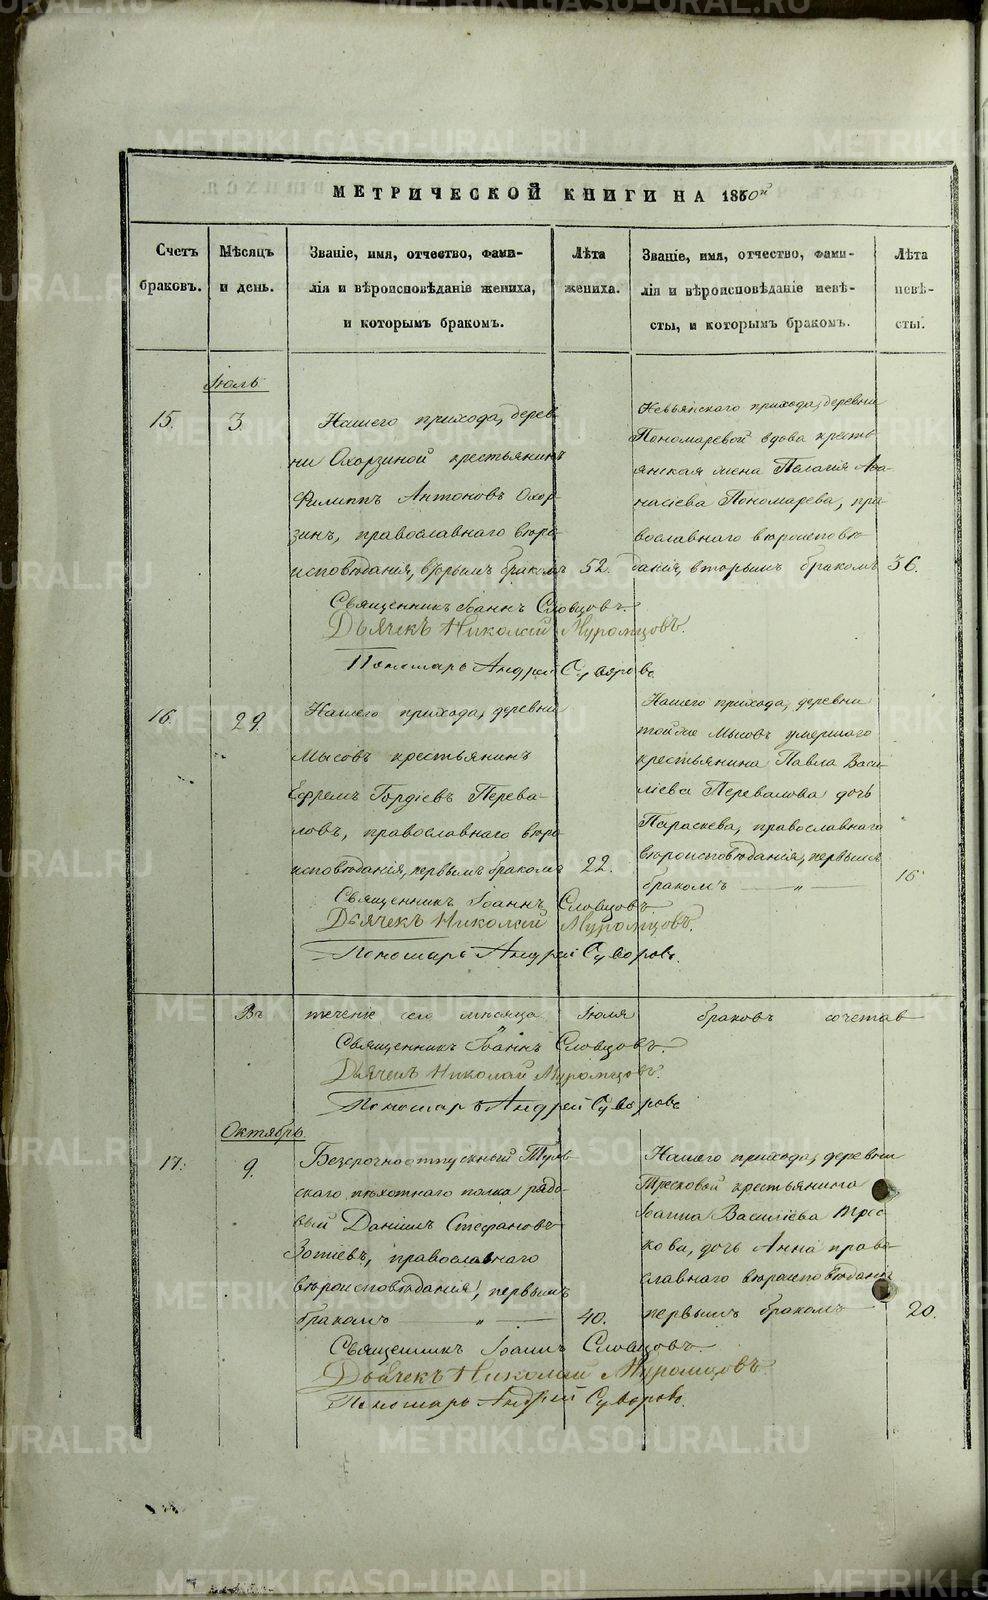 МЕТРИЧЕСКОЙ КНИГИ НА 1860й
Счетъ браковъ.
Мѣсяцъ и день.
Званіе, имя, отчество, фами-
лія и вѣроисповѣданіе жениха,
и которымъ бракомъ.
Лѣта жениха.
Званіе, имя, отчество, фами-
лія и вѣроисповѣданіе невѣ-
сты, и которымъ бракомъ.
Лѣта невѣ-
сты.
Іюль
15.
3
Нашего прихода, дерев
ни Охорзиной крестьянинъ
Филиппъ Антоновъ Охор-
зинъ, православнаго вѣро-
исповѣданія, вторымъ бракомъ
52.
Невьянскаго прихода, деревни
Пономаревой вдова кресть-
янская жена Пелагія Аѳа-
насіева Пономарева, пра-
вославнаго вѣроисповѣ-
данія, вторымъ бракомъ
36.
Священникъ Іоаннъ Словцовъ.
Дьячекъ Николай Муромцовъ.
Пономарь Андрей Суворовъ
16.
29.
Нашего прихода, деревни
Мысовъ крестьянинъ
Ефремъ Гордіевъ Перева-
ловъ, православнаго вѣро-
исповѣданія, первымъ бракомъ
22.
Нашего прихода, деревни
той же Мысовъ умершаго
крестьянина Павла Васи-
ліева Перевалова дочь
Параскева, православнаго
вѣроисповѣданія, первымъ
бракомъ — „ —
16
Священникъ Іоаннъ Словцовъ.
Дьячекъ Николай Муромцовъ.
Пономарь Андрей Суворовъ.
Въ теченіе сего мѣсяца Іюля браковъ сочетав
Священникъ Іоаннъ Словцовъ.
Дьячекъ Николай Муромцовъ.
Пономарь Андрей Суворовъ
Октябрь
17.
9.
Безсрочноотпускный
скаго пѣхотнаго полка рядо-
вый Даніилъ Стефановъ
Зотіевъ, православнаго
вѣроисповѣданія, первымъ
бракомъ — „ —
40.
Нашего прихода, деревни
Тресковой крестьянина
Іоанна Василіева Трес
кова, дочь Анна право-
славнаго вѣроисповѣданія
первымъ бракомъ —
20.
Священникъ Іоаннъ Словцовъ.
Дьячекъ Николай Муромцовъ.
Пономарь Андрей Суворовъ.
METRIKI.GASO-URAL.RU